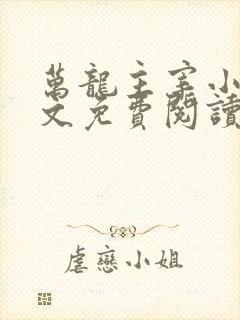 萬龍主宰小
文免費閱讀
虐戀小姐